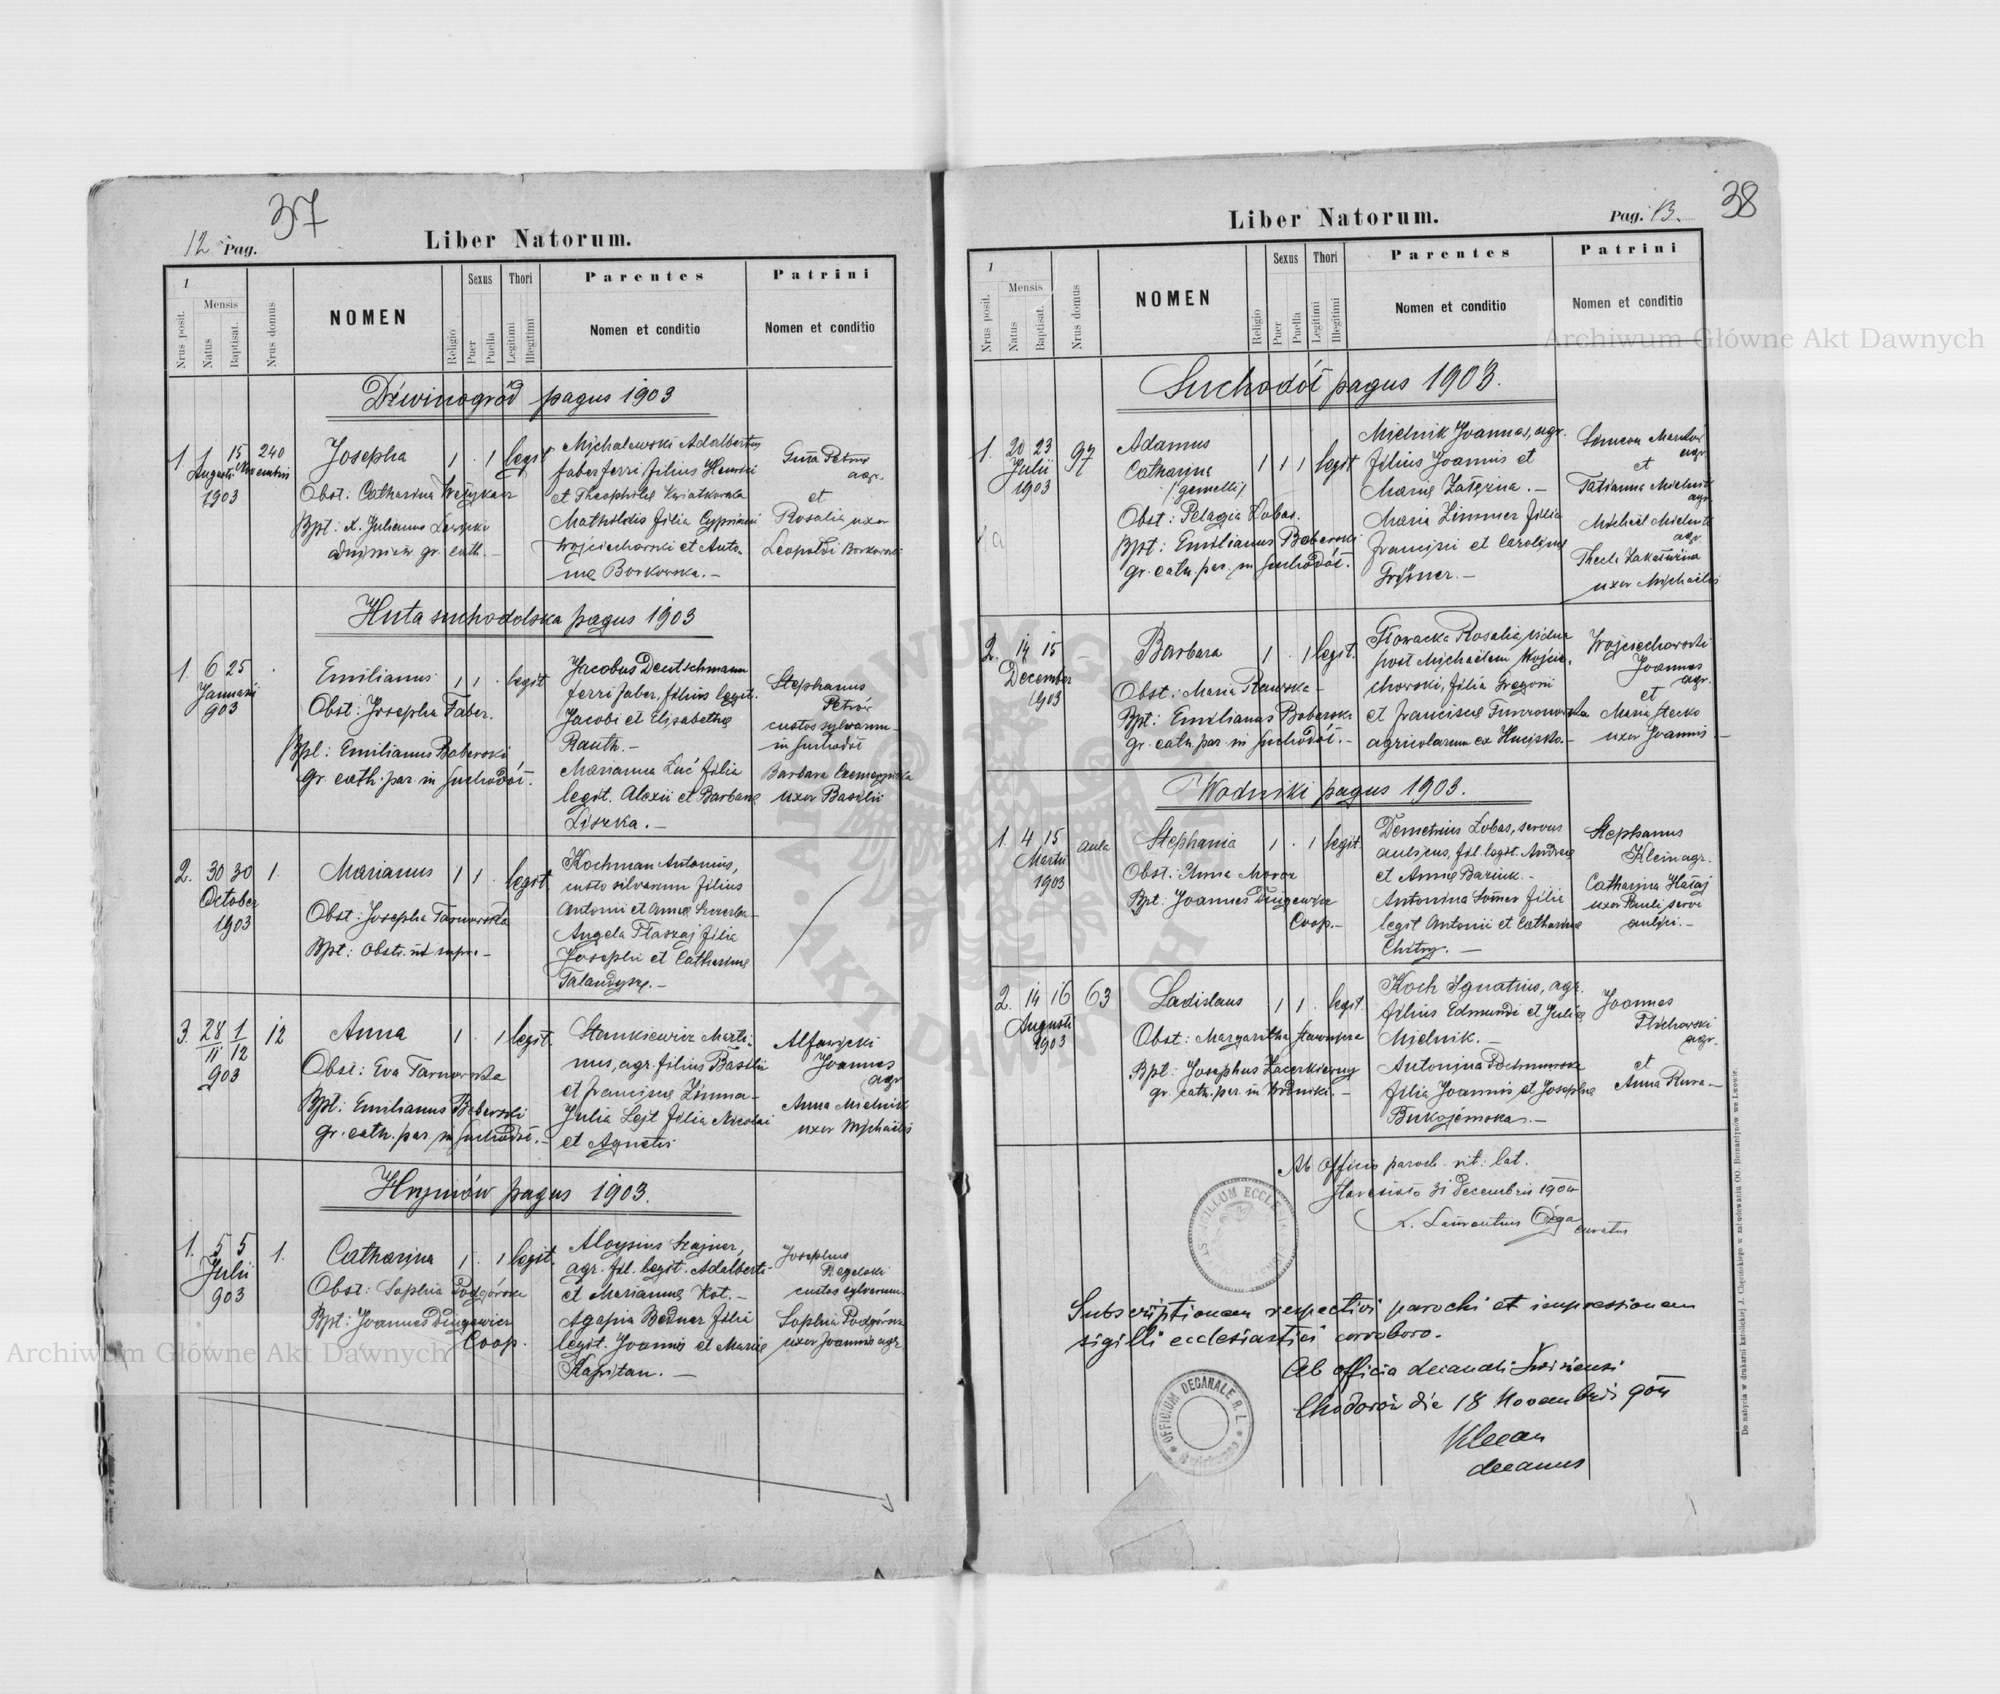 37
12 Pag.
Liber Natorum.
1
Nrus posit.
Mensis
Natus
Baptisat.
Nrus domus
NOMEN
Religio
Sexus
Puer
Puella
Thori
Legitimi
Illegitimi
Parentes
Nomen et conditio
Patrini
Nomen et conditio
Dźwinogród pagus 1903
1 1 15 240
Augusti Novembris
1903
Josepha 1 . 1 legit
Obst: Catharina
Bpt: x. Julianus
gr. cath.
Michalewski Adalbertus
faber ferri, filius
et Theophilae Kwiatkowska
Mathildis filia Cypriani
Wojciechowski et Anto-
nae Borkowska.-
Petrus
agr.
et
Rosalia uxor
Leopoldi Borkowski
Huta suchodolska pagus 1903
1. 6 25
Januarii
903
Emilianus 1 1 . legit
Obst: Josepha Faber.
Bpt: Emilianus Boberski
gr. cath. par. in Suchodół.
Jacobus Deutschmann
ferri faber, filius legit.
Jacobi et Elisabethae
Rauth.-
Marianna Łuć filia
legit. Alexii et Barbarae
Liszka.-
Stephanus
Petrów
custos sylvarum
in Suchodół
Barbara
uxor Basilii
2. 30 30 1.
October
1903
Marianus 1 1 . legit
Obst: Josepha Tarnowska
Bpt: Obstr. ut supra-
Kochman Antonius,
custo silvarum filius
Antonii et Annae
Angela Ptaszaj filia
Josephi et Catharinae
3. 28/11 1/12 12
903
Anna 1 . 1 legit.
Obst: Eva Tarnowska
Bpt: Emilianus Boberski
gr. cath. par. in Suchodół.-
Stankiewicz Marti-
nus, agr. filius Basilii
et Franciscae Zimna-
Julia Lejt filia Nicolai
et Agnetis
Joannes
agr
Anna Mielnik
uxor Michaelis
Hryniów pagus 1903.
1. 5 5 1.
Julii
903
Catharina 1 . 1 legit.
Obst: Sophia Podgórska
Bpt: Joannes Długiewicz
Coop.
Aloysius Szajner,
agr. fil. legit. Adalberti
et Mariannae Kot.-
Agapia Bednar filia
legit. Joannis et Mariae
Kapitan.-
Josephus
custos sylvarum
Sophia Podgórska
uxor Joannis agr
38
Liber Natorum.
Pag. 13.
1
Nrus posit.
Mensis
Natus
Baptisat.
Nrus domus
NOMEN
Religio
Sexus
Puer
Puella
Thori
Legitimi
Illegitimi
Parentes
Nomen et conditio
Patrini
Nomen et conditio
Suchodół pagus 1903.
1. 20 23 97
Julii
1903
Adamus
Catharina 1 1 1 legit
(gemelli)
Obst: Pelagia Łobas.
Bpt: Emilianus Boberski
gr. cath. par. in Suchodół.
Mielnik Joannes, agr.
filius Joannis et
Mariae
Maria Zimmer filia
Francisci et Carolinae
Simeon
agr
et
Tatianna Mielnik
agr
Michael Mielnik
agr.
uxor Michaelis
2. 14 15 -
December
1903
Barbara 1 . 1 legit.
Obst: Maria
Bpt: Emilianus Boberski
gr. cath. par. in Suchodół.-
Głowacka Rosalia, vidua
post Michaelem Wojcie-
chowski, filia Gregorii
et Franciscae
agricolarum ex Hucisko.-
Wojciechowski
Joannes
agr.
et
Maria Stecko
uxor Joannis-
Wodniki pagus 1903.
1. 4 15 aula
Martii
1903
Stephania 1 . 1 legit.
Obst: Anna Moroz
Bpt: Joannes Długiewicz
Coop.-
Demetrius Łobas, servus
aulicus, fil. legit. Andreae
et Annae Baziuk.-
Antonina filia
legit Antonii et Catharinae
Stephanus
Klein agr.
Catharina Hałaj
uxor Pauli servi
aulici.-
2. 14 16 63
Augusti
1903
Ladislaus 1 1 . legit.
Obst: Margaritha
Bpt: Josephus
gr. cath. par. in Wodniki.-
Koch Ignatius, agr.
filius Edmundi et Julia
Mielnik.-
Antonina
filia Joannis et Josepha
Bukojemska.-
Joannes
agr.
et
Anna
Ab Officio paroch. rit: lat.
31 Decembris 1904
x. Laurentius
curatus
SIGILLUM ECCLE
Subscriptionem respectivi parochi et impressionem
sigilli ecclesiastici corroboro.
Ab officio decanali
Chodorów die 18 Novembris 904
Klecan
decanus
OFFICIUM DECANALE R. L.
Do nabycia w drukarni katolickiej J. Chęcińskiego w zabudowaniu OO. Bernardynów we Lwowie.
Archiwum Główne Akt Dawnych
Archiwum Główne Akt Dawnych